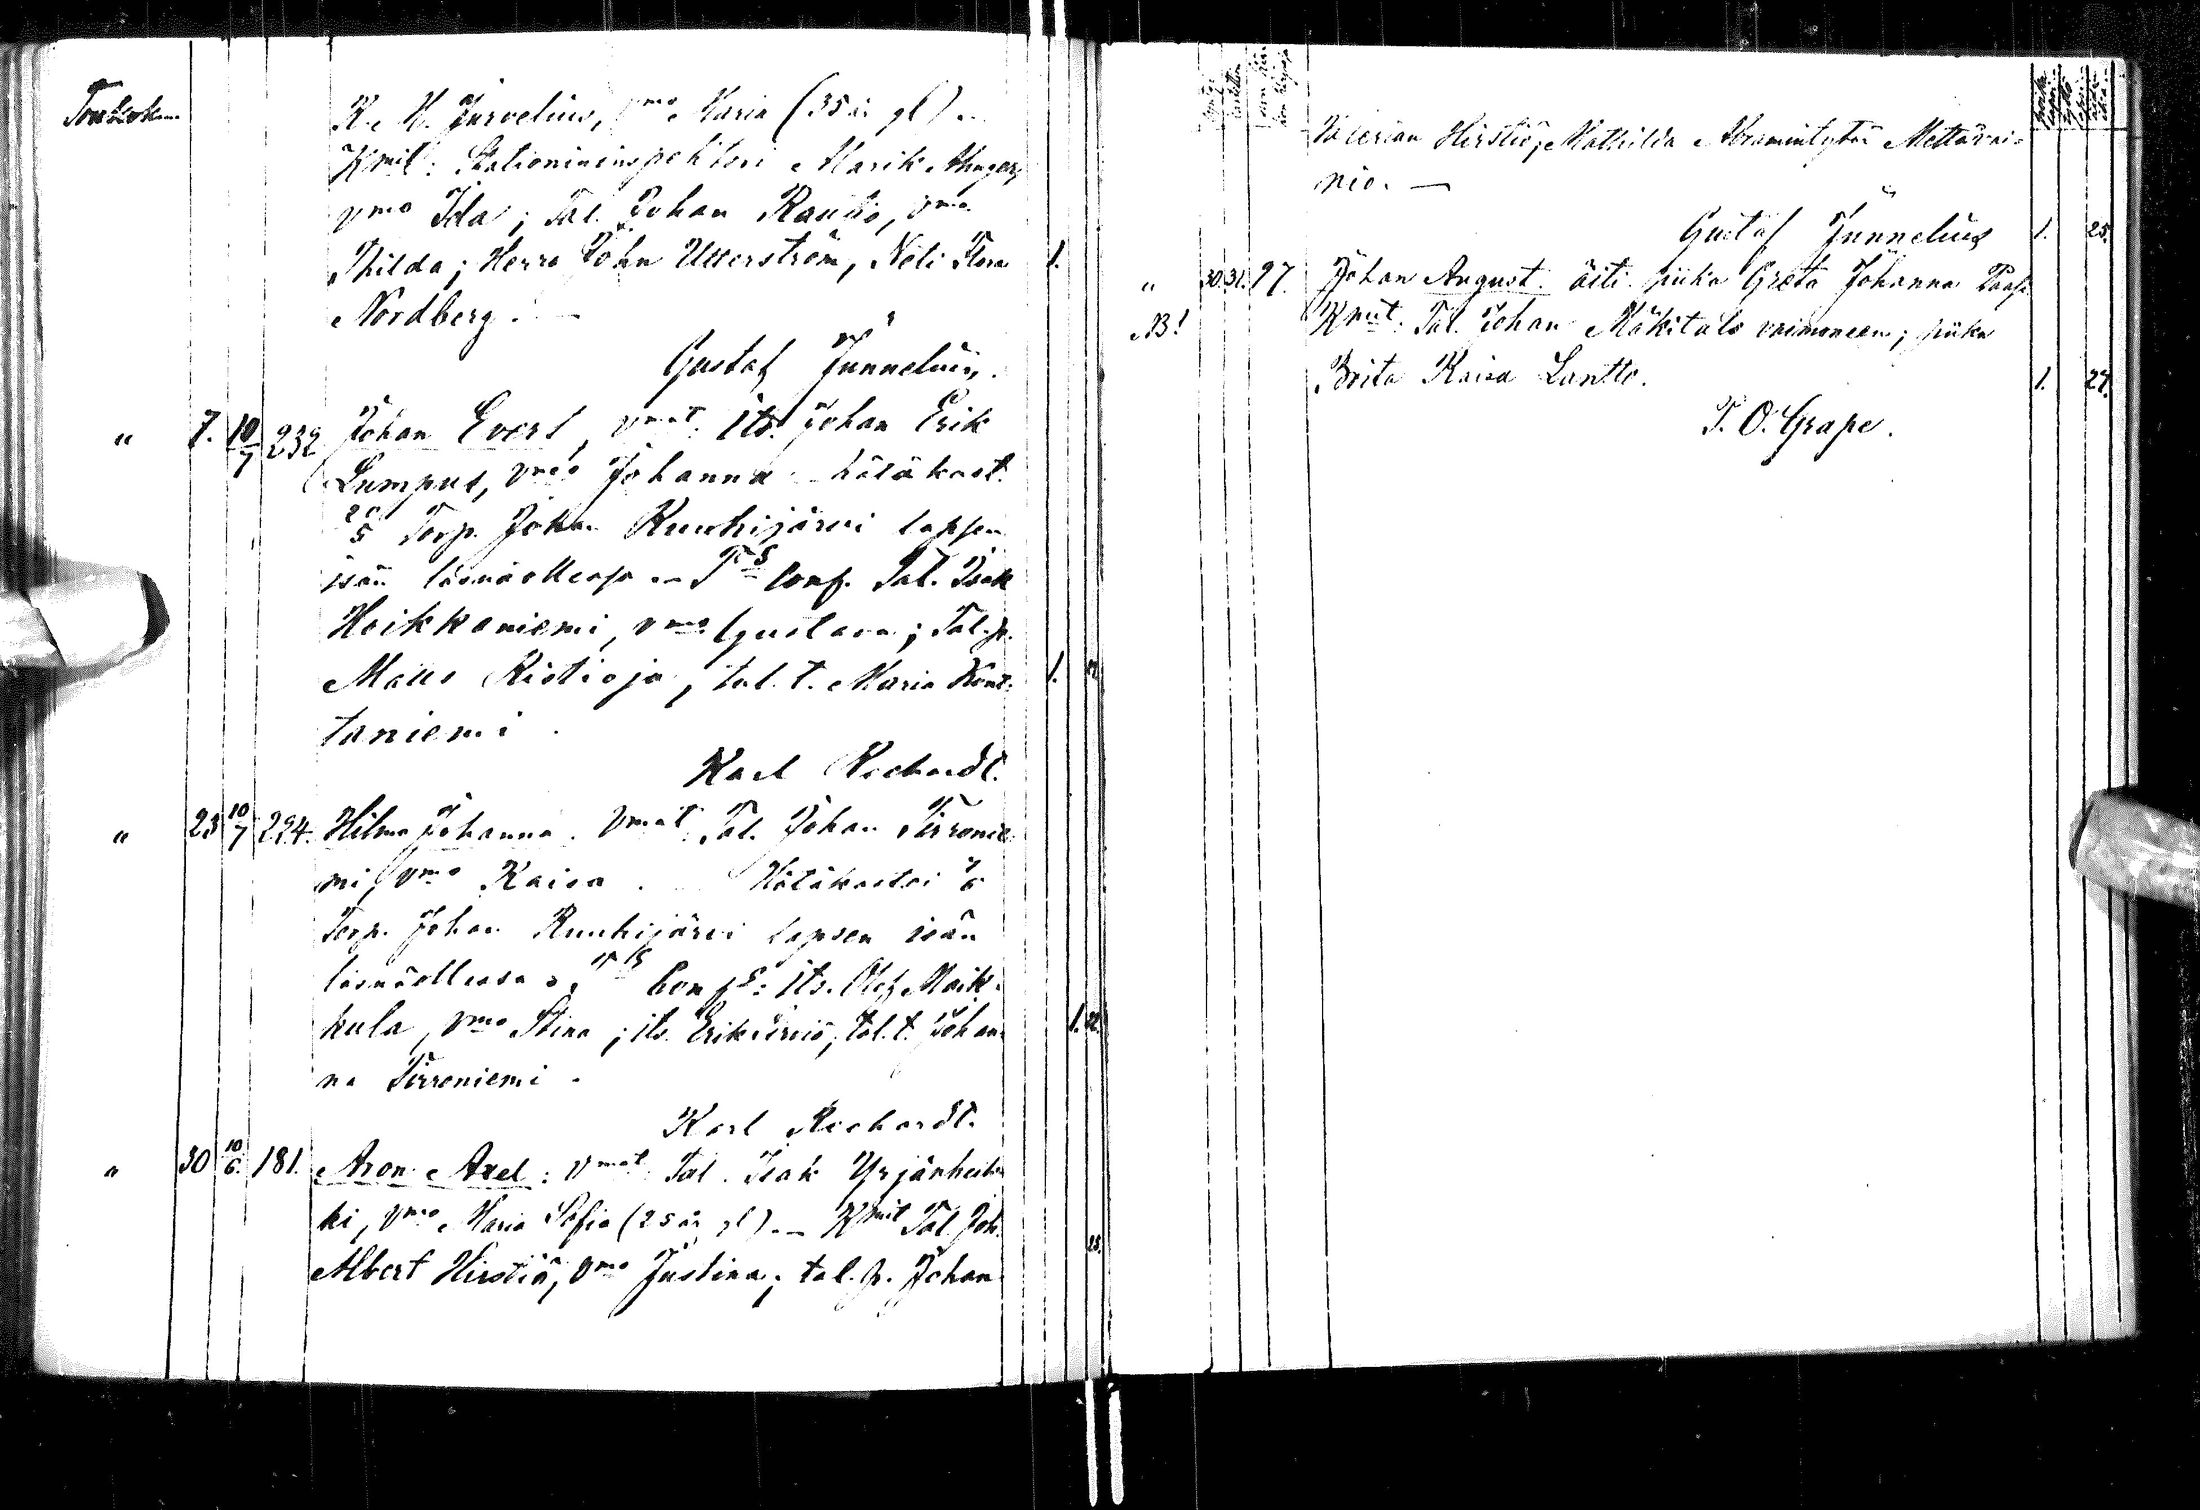 Toukok.
K. H. Jurvelius, vmo Maria (35 år gl) —
Kmit: Stationininspehtori Marik
vmo Ida; Tal. Johan Rautio, vmo
Hilda; Herra John Utterström, Neli Flora 1.
Nordberg. —
Gustaf Junnelius.
" 7. 10/7 232 Johan Evert, vmat: its. Johan Erik
Lumpus, vmo Johanna hätäkast.
20/5 Torp. Johan Ruuhijärvi lapsen
isän läsnäollessa — Ts Conf. Tal. Isak
Heikkaniemi, vmo Gustava; Tal. p.
Matts Ristioja, tal. t. Maria Kont- 1.
taniemi.
Karl Rechardt.
" 23 10/7 224. Hilma Johanna. Vmat: Tal. Johan Törrönie-
mi, vmo Kaisa. Hätäkastoi
Torp. Johan Ruuhijärvi lapsen isän
läsnäollessa. Ts Confs: its. Olof Maik-
kula, vmo Stina; its. Erik Sirviö; tal. t. Johan- 1. 22.
na Törröniemi.
Karl Rechardt.
" 30 10/6. 181. Aron Axel: Vmat Tal. Isak Yrjänheik-
ki, vmo Maria Sofia (25 år gl). — Kmit Tal. Joh.
Albert Hirstiö, vmo Justina; tal. p. Johan 25.
Valerian Hirstiö; Mathilda Abramintytär Mettävai-
nio. —
Gustaf Junnelius 1. 25.
" 30. 31. 97. Johan August. äiti. piika Greta Johanna
NB! Kmit: Tal. Johan Mäkitalo vaimoneen; piika
Brita Kaisa Lantto. 1. 27.
T. O. Grape.